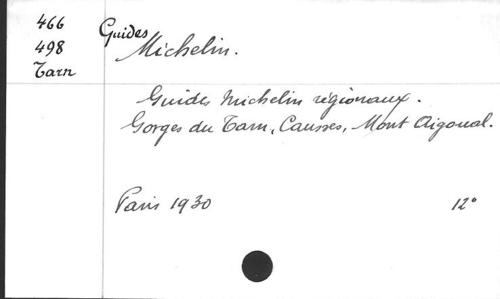 466
498
Tarn
Guides
Michelin.
Guides Michelin régionaux.
Gorges du Tarn, Causses, Mont Aigoual.
Paris 1930 12°